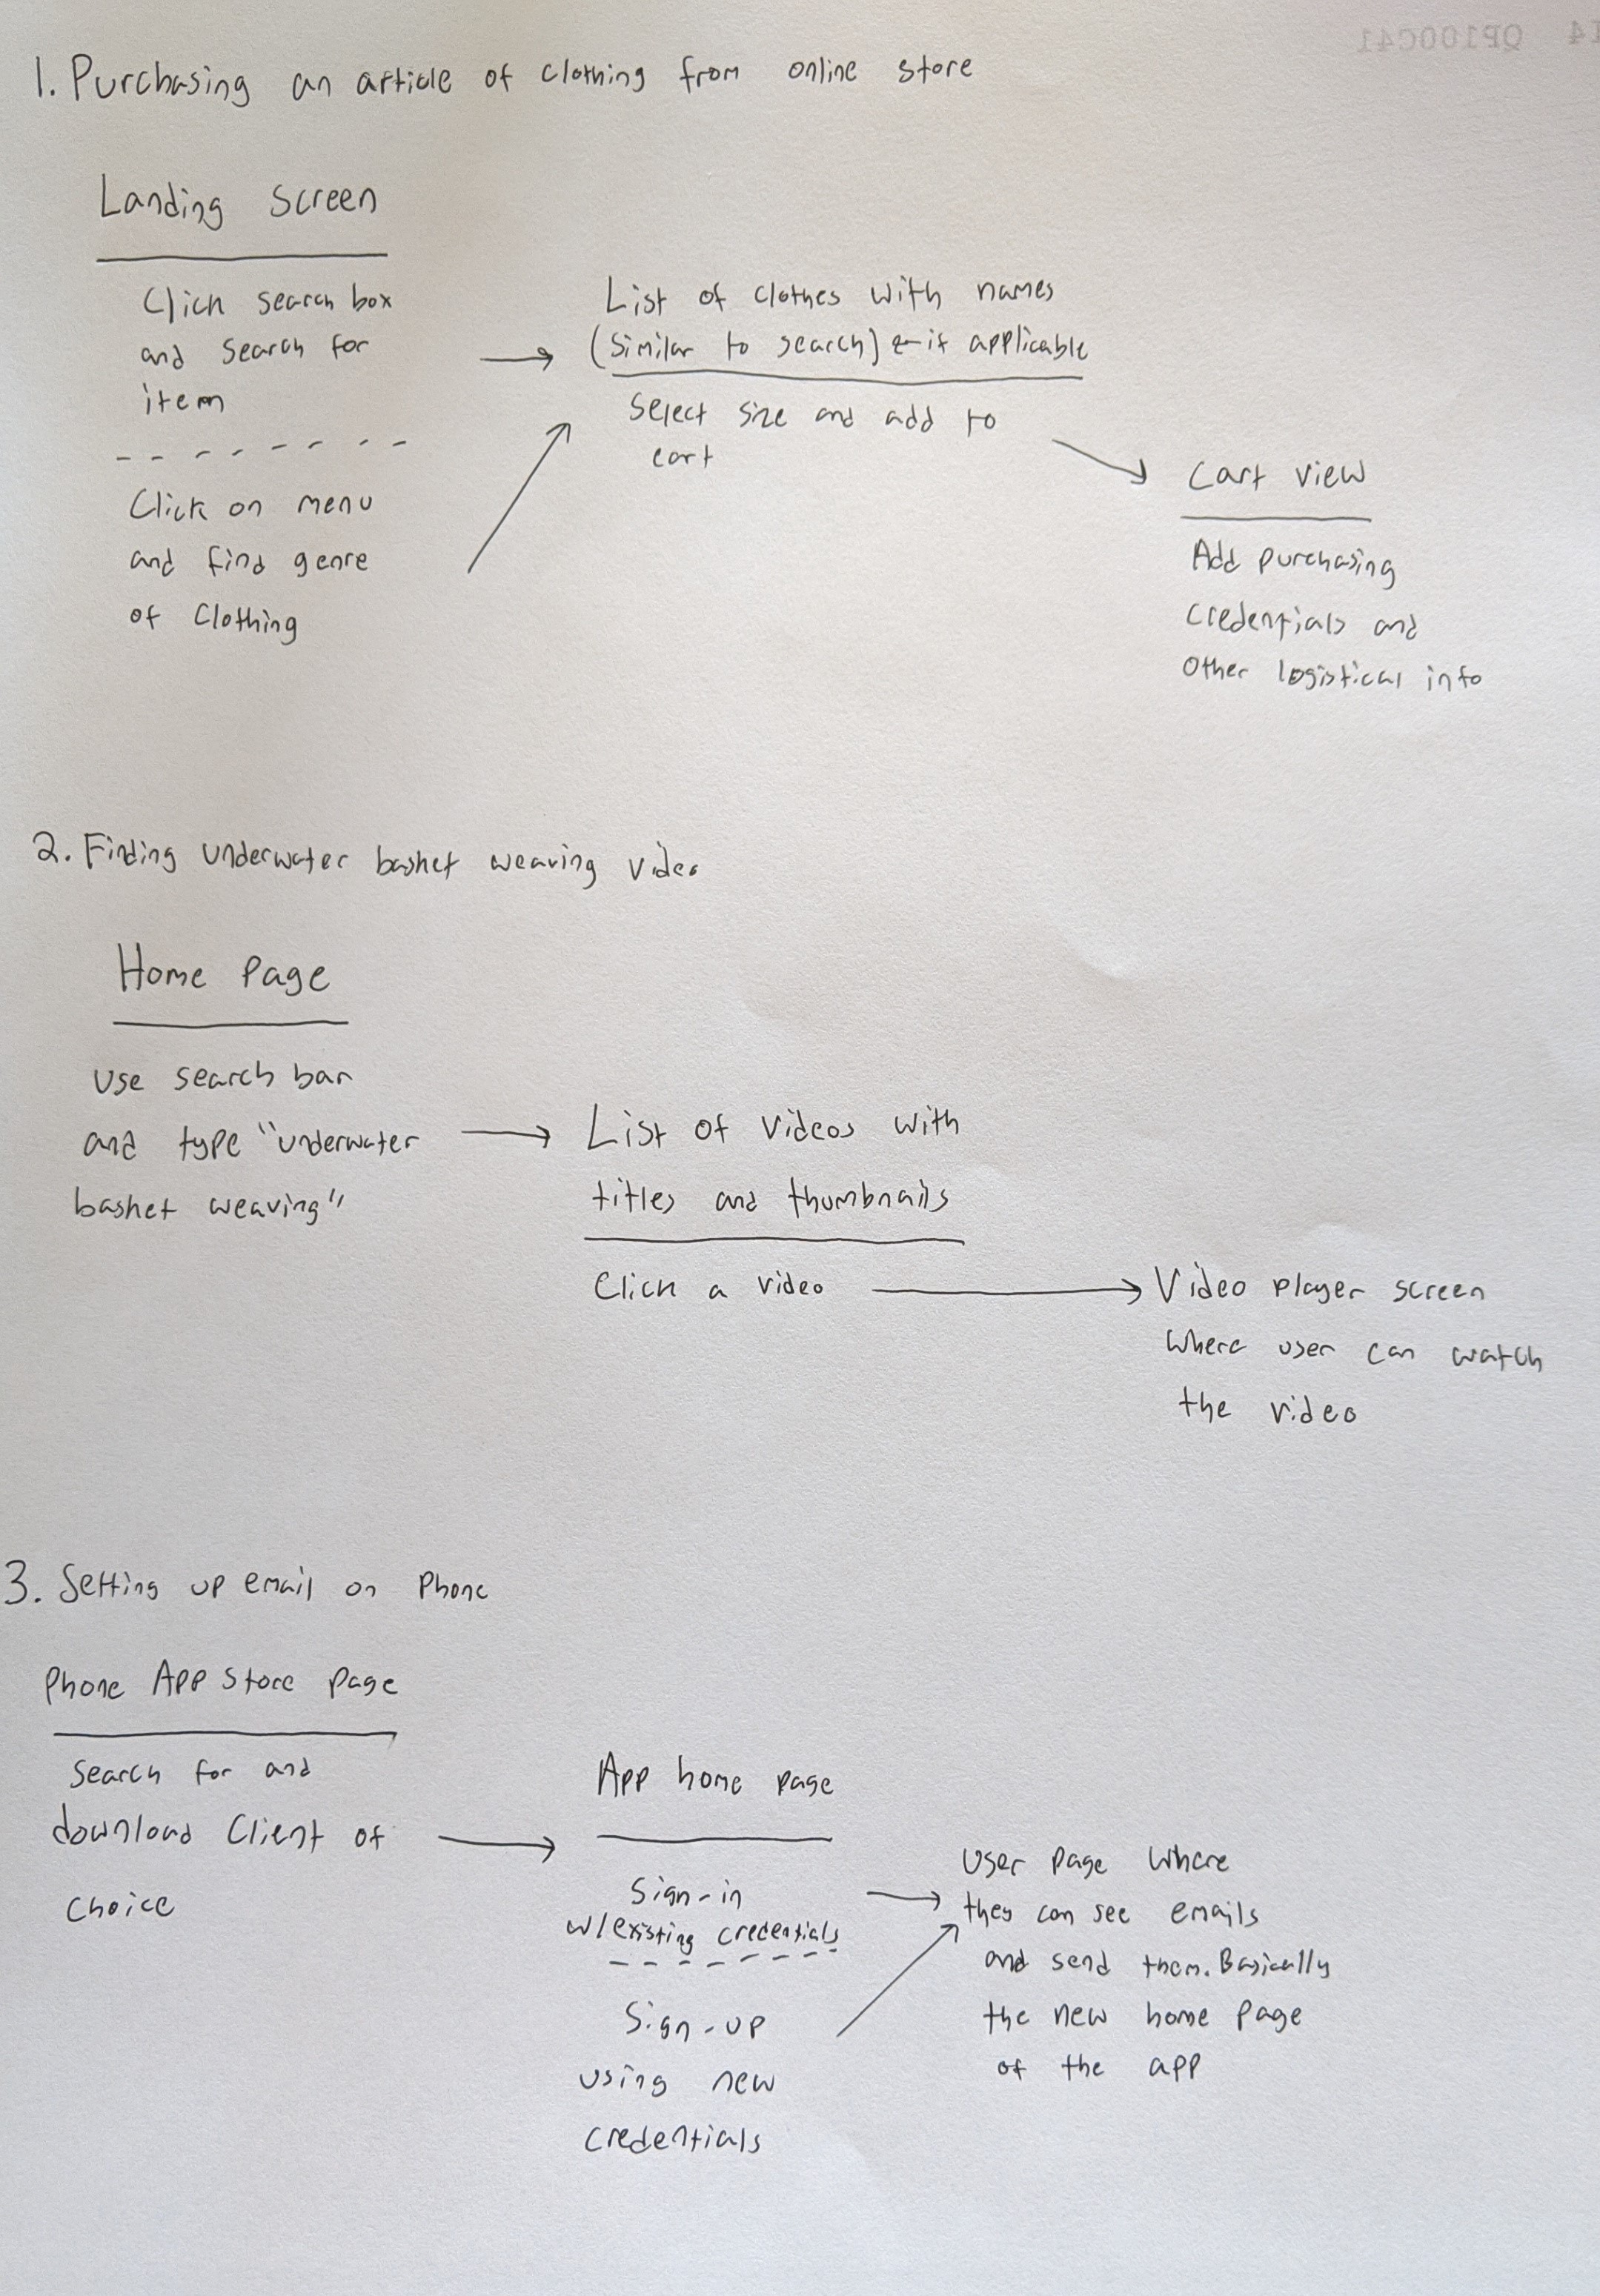 1. Purchasing an article of clothing from online store
Landing screen
Click search box
and search for
item
Click on menu
and find genre
of clothing
List of clothes with names
(similar to search) ← if applicable
Select size and add to
cart
Cart view
Add purchasing
credentials and
other logistical info
2. Finding underwater basket weaving video
Home page
Use search bar
and type "underwater
basket weaving"
List of videos with
titles and thumbnails
Click a video
Video player screen
where user can watch
the video
3. Setting up email on phone
Phone App store page
Search for and
download client of
choice
App home page
Sign-in
w/existing credentials
Sign-up
using new
credentials
User page where
they can see emails
and send them. Basically
the new home page
of the app